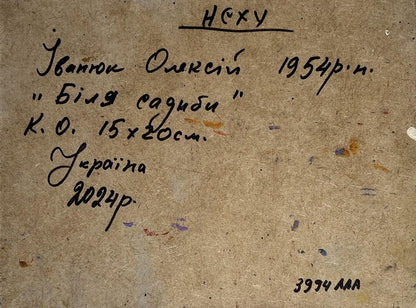 НСХУ
Іванюк Олексій 1954р.н.
"Біля садиби"
К.О. 15х20см.
Україна
2024р.
3994 ЛЛА